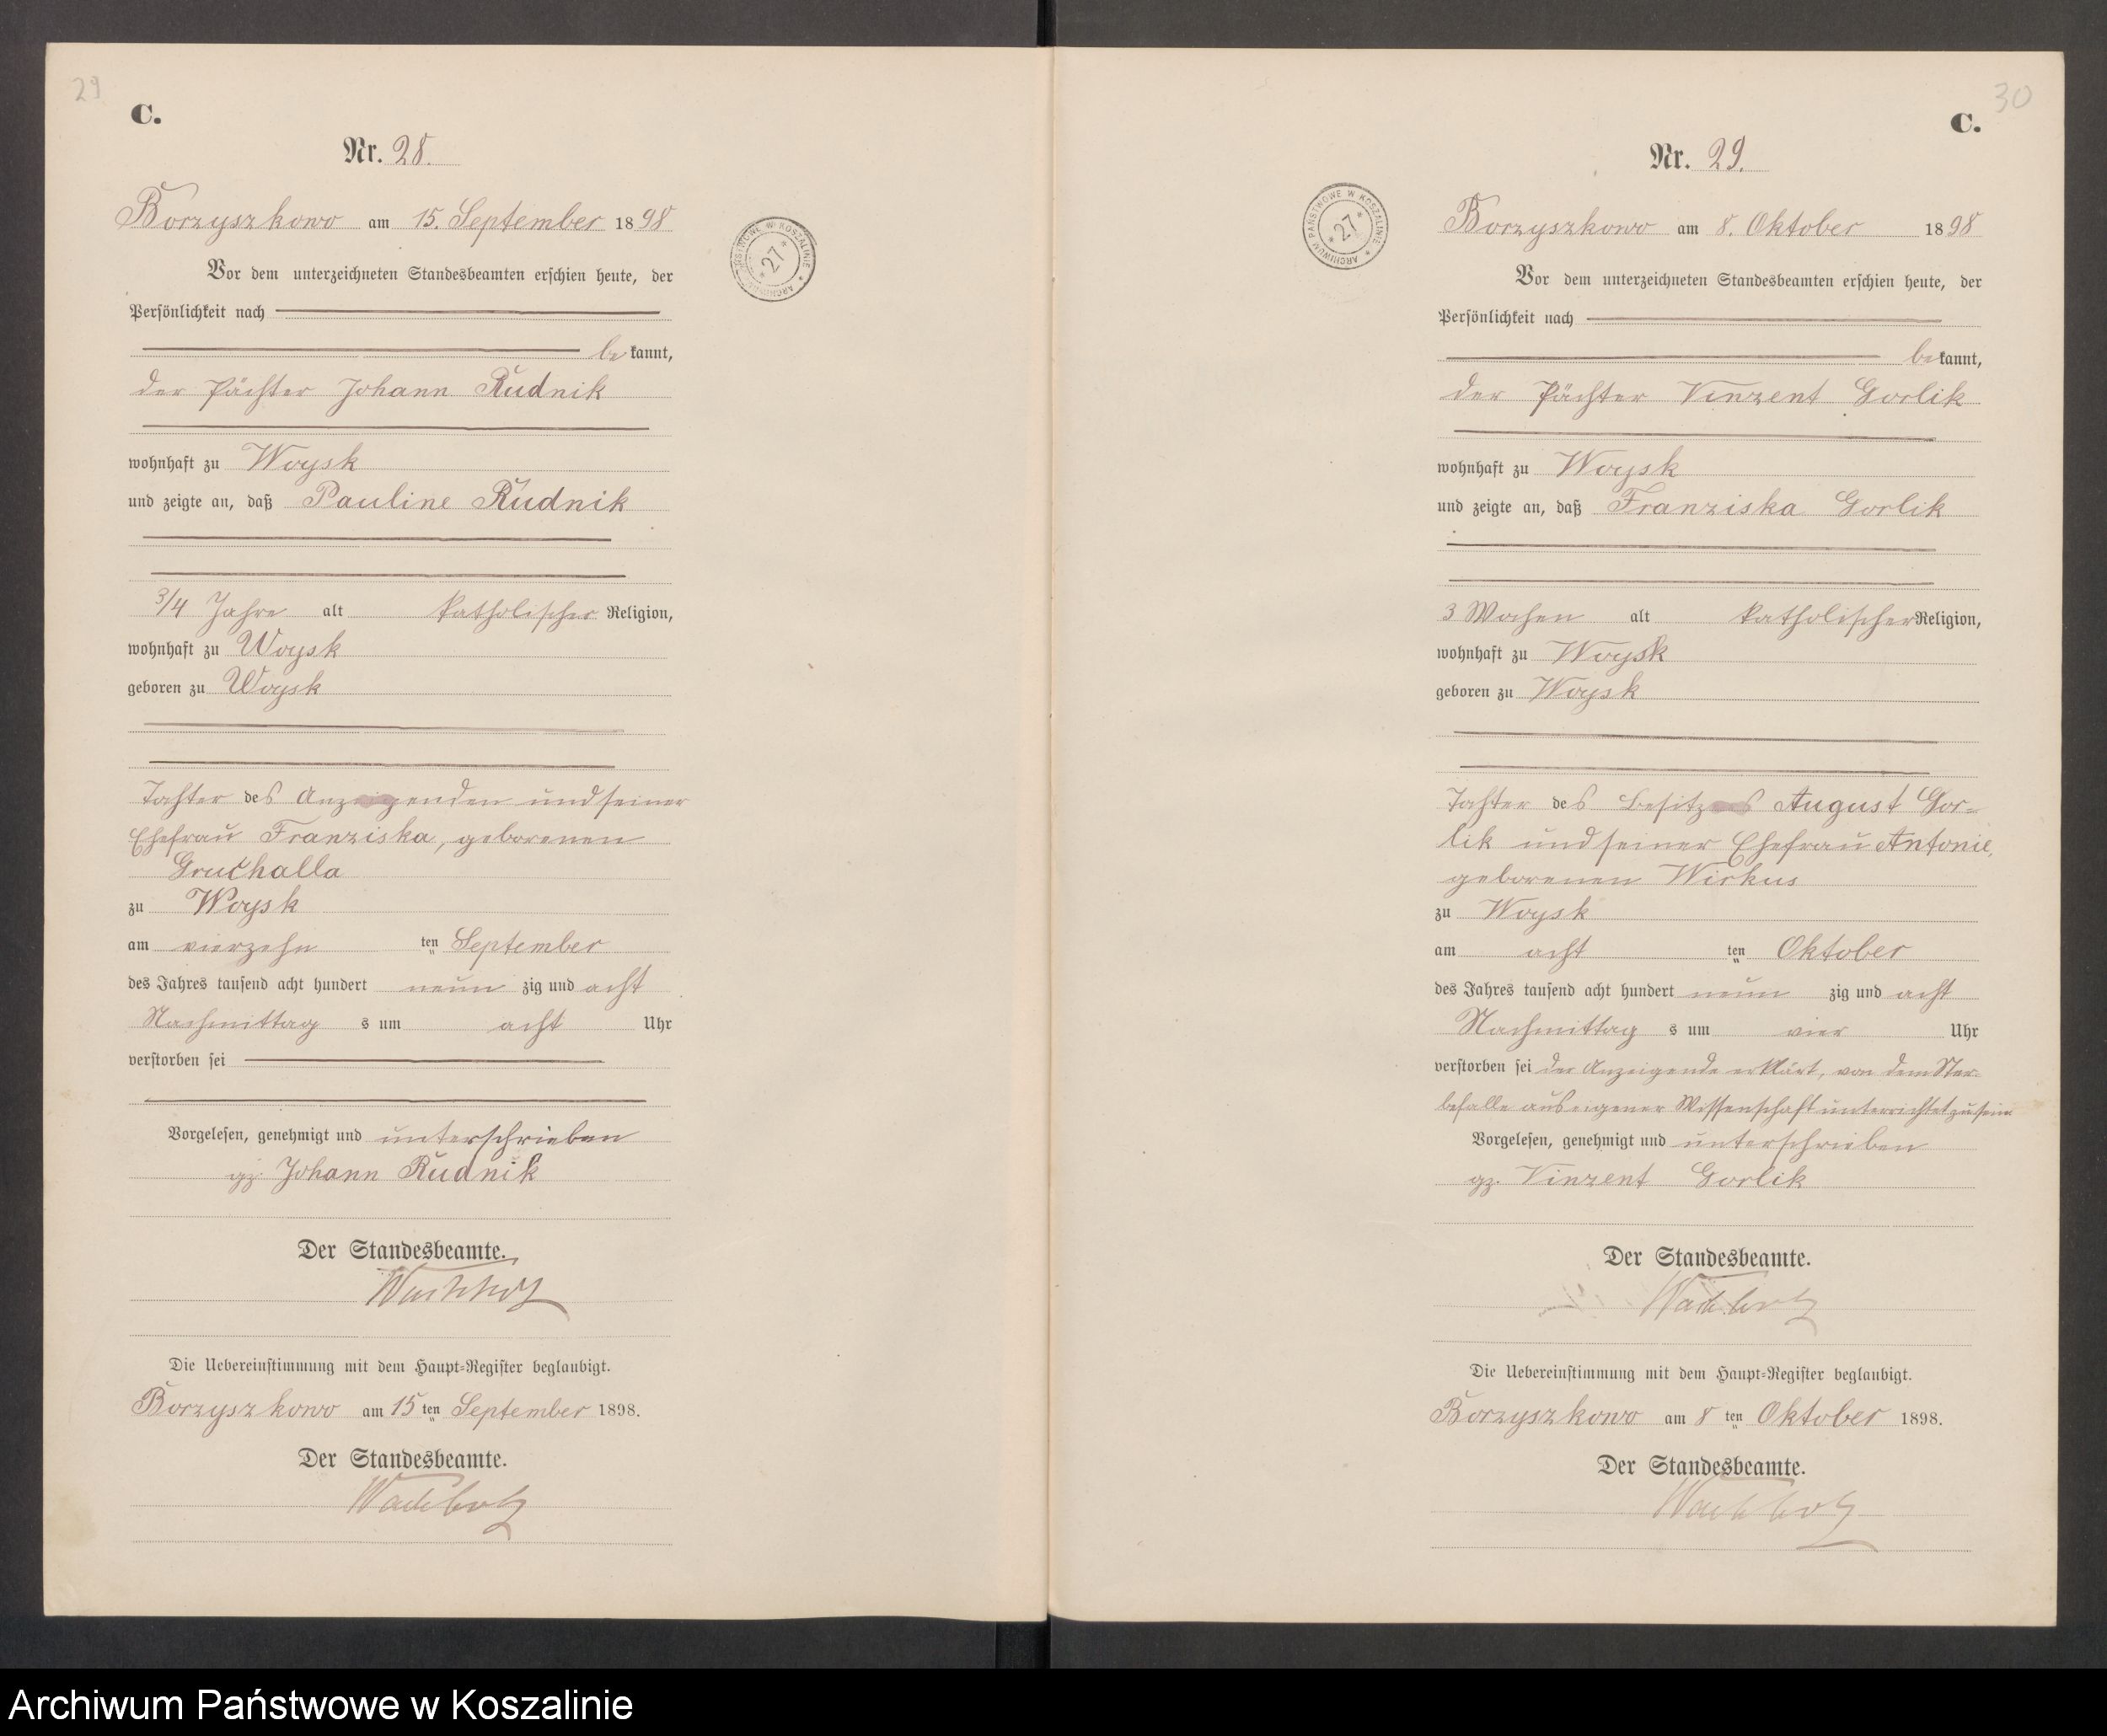 29
C.
Nr. 28.
Borzyszkowo am 15. September 1898
Vor dem unterzeichneten Standesbeamten erschien heute, der
Persönlichkeit nach
bekannt,
der Pächter Johann Rudnik
wohnhaft zu Woysk
und zeigte an, daß Pauline Rudnik
3/4 Jahre alt katholischer Religion,
wohnhaft zu Woysk
geboren zu Woysk
Tochter des Anzeigenden und seiner
Ehefrau Franziska, geborenen
Gruchalla
zu Woysk
am vierzehn ten September
des Jahres tausend acht hundert neun zig und acht
Nachmittag s um acht Uhr
verstorben sei
Vorgelesen, genehmigt und unterschrieben
gz. Johann Rudnik
Der Standesbeamte.
Wachholz
Die Uebereinstimmung mit dem Haupt-Register beglaubigt.
Borzyszkowo am 15 ten September 1898.
Der Standesbeamte.
Wachholz
ARCHIWUM PAŃSTWOWE W KOSZALINIE
* 27 *
30
C.
Nr. 29.
Borzyszkowo am 8. Oktober 1898
Vor dem unterzeichneten Standesbeamten erschien heute, der
Persönlichkeit nach
bekannt,
der Pächter Vinzent Gorlik
wohnhaft zu Woysk
und zeigte an, daß Franziska Gorlik
3 Wochen alt katholischer Religion,
wohnhaft zu Woysk
geboren zu Woysk
Tochter des Besitzers August Gor-
lik und seiner Ehefrau Antonie,
geborenen Wirkus
zu Woysk
am acht ten Oktober
des Jahres tausend acht hundert neun zig und acht
Nachmittag s um vier Uhr
verstorben sei der Anzeigende erklärt, von dem Ster-
befalle aus eigener Wissenschaft unterrichtet zu sein
Vorgelesen, genehmigt und unterschrieben
gz. Vinzent Gorlik
Der Standesbeamte.
Wachholz
Die Uebereinstimmung mit dem Haupt-Register beglaubigt.
Borzyszkowo am 8 ten Oktober 1898.
Der Standesbeamte.
Wachholz
ARCHIWUM PAŃSTWOWE W KOSZALINIE
* 27 *
Archiwum Państwowe w Koszalinie